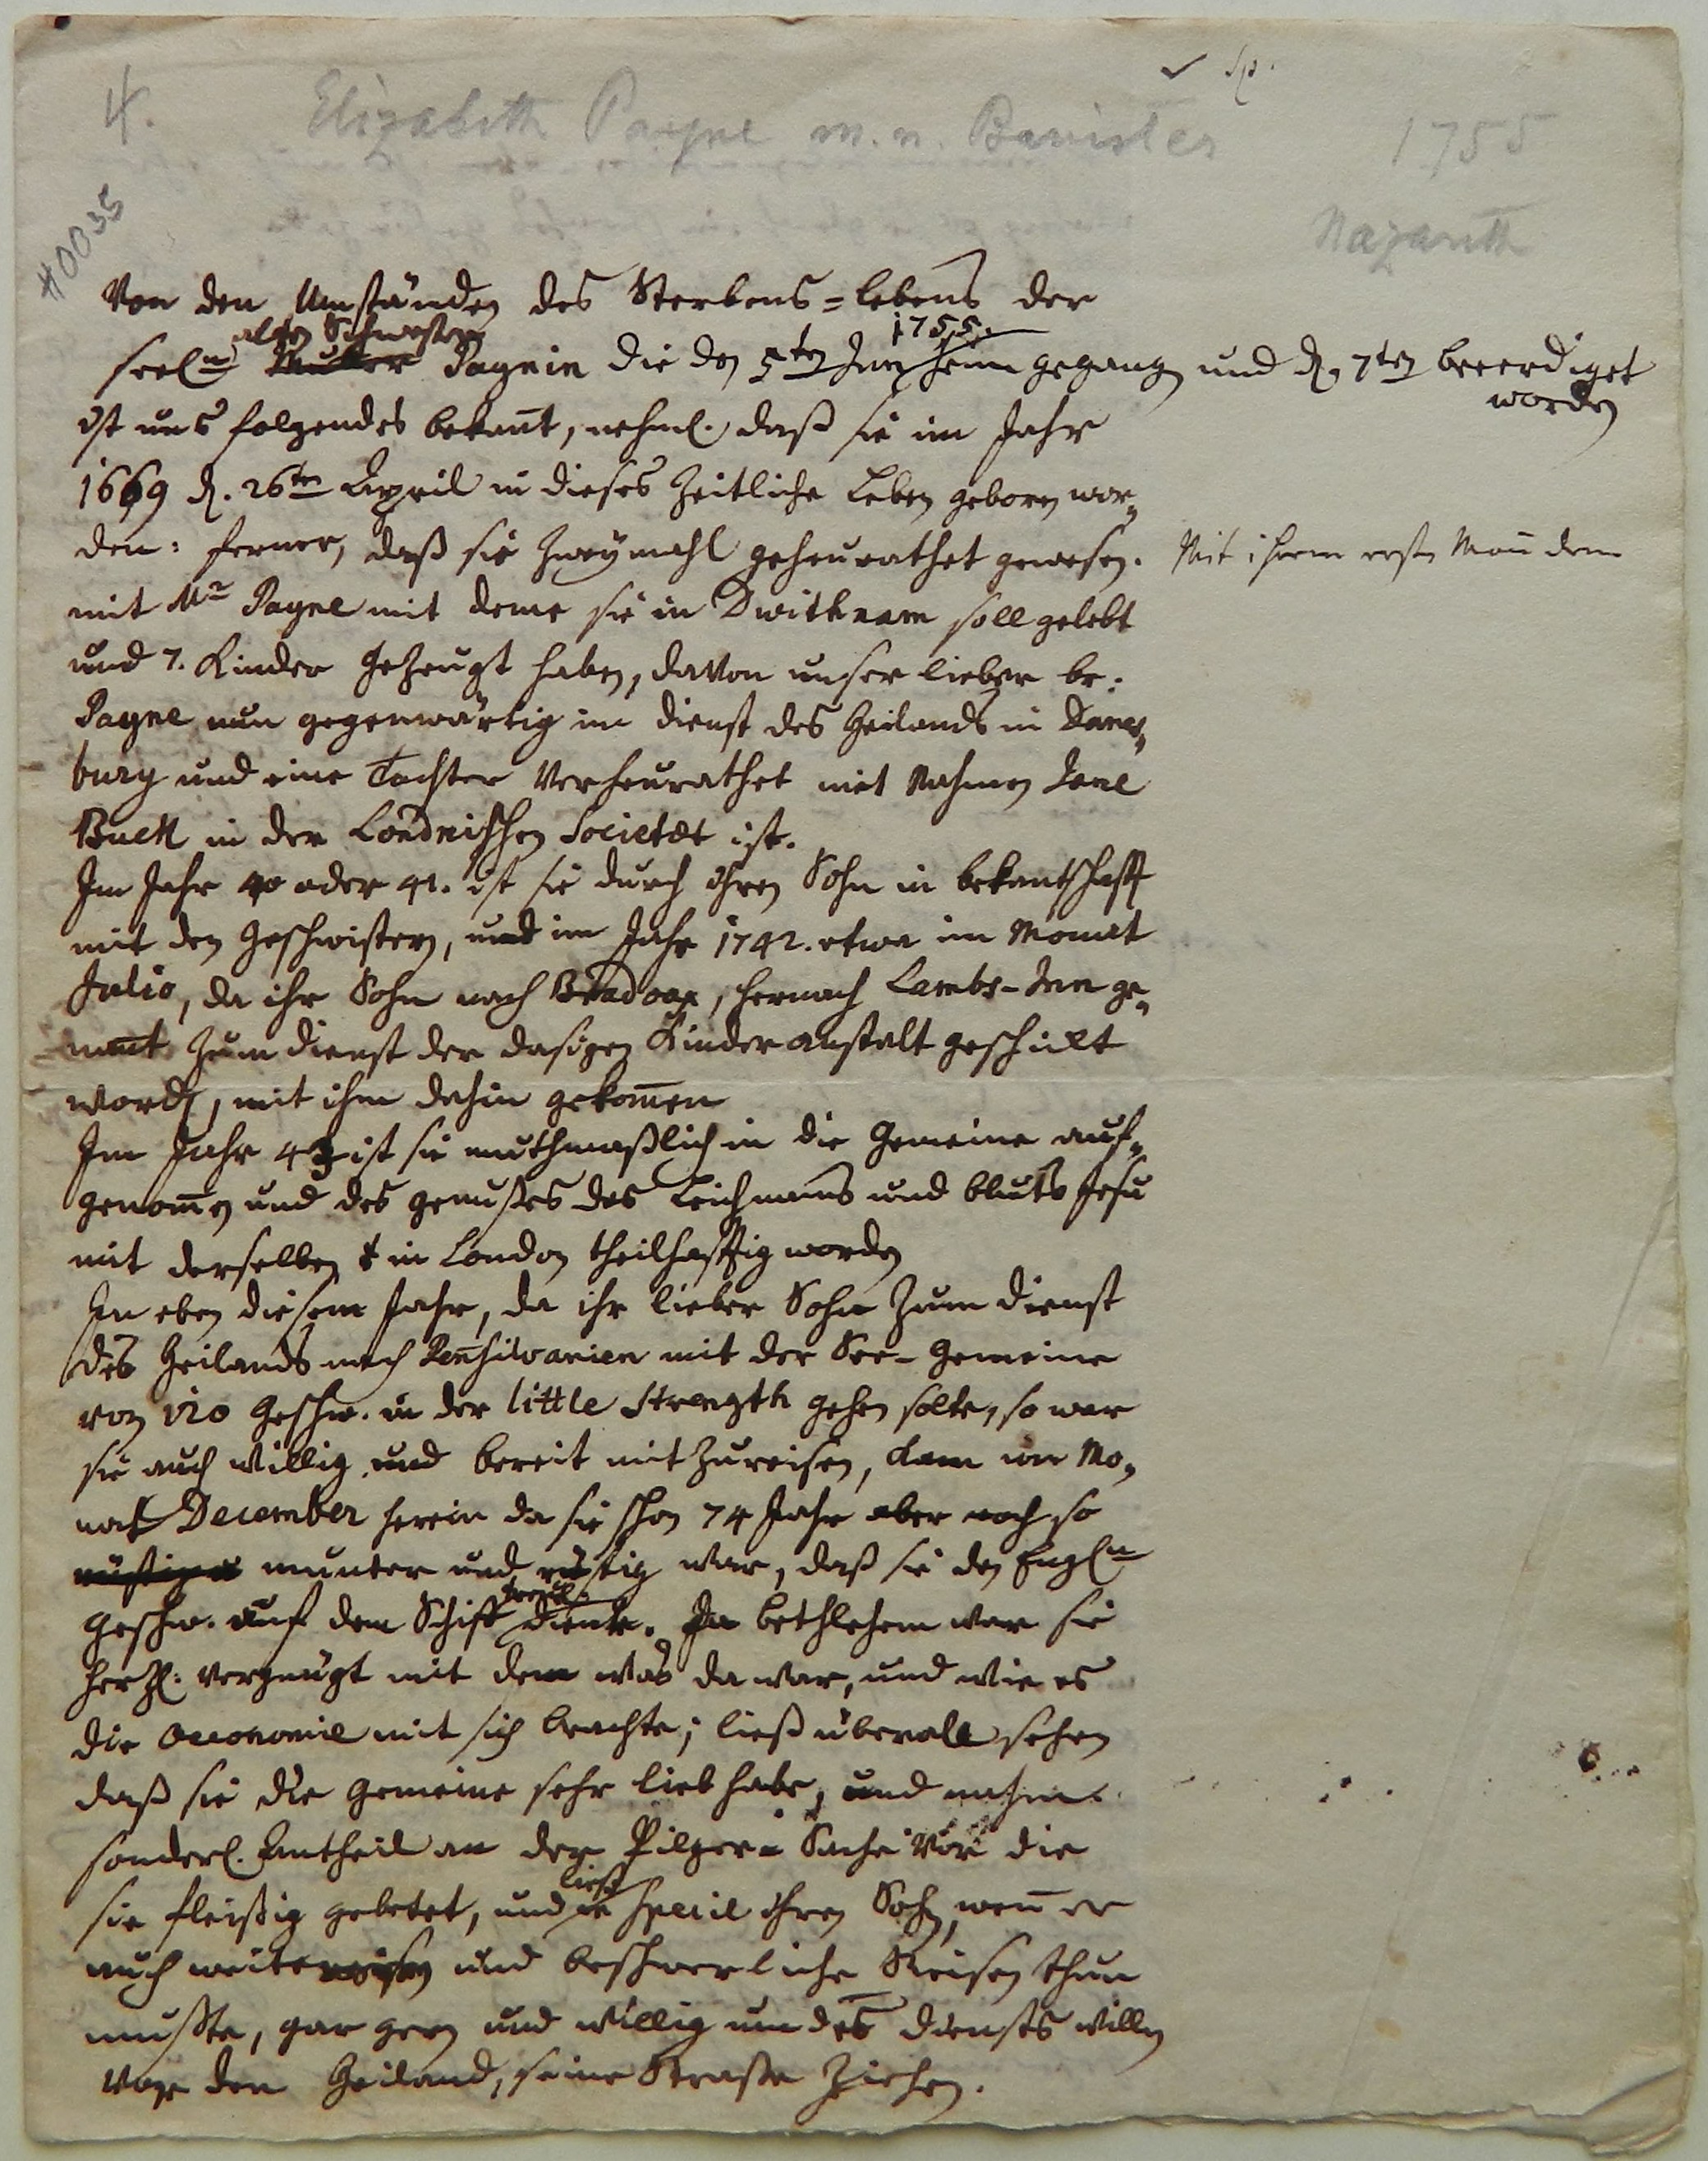 4.
Elizabeth Payne m. n. Banister
1755
Nazareth
#0035
Von den Umständen des Sterbens-lebens der
alten Schwester
1755.
seeln Mutter Paynin die den 5ten Jan. heim gegangen und d. 7ten beerdiget
worden
ist uns folgendes bekañt, nehml. daß sie im Jahr
1669 d. 26ten April in dieses Zeitliche Leben geboren wor„
den: ferner, daß sie Zweymahl geheurathet gewesen. Mit ihrem ersten Mañ dem
mit Mr Payne mit deme sie in Dwitknam soll gelebt
und 7. Kinder gezeugt haben, davon unser lieber br:
Payne nun gegenwärtig im dienst des Heilands in Danes„
bury und eine Tochter Verheurathet mit Nahmen Jane
Buck in der Londnischen Societæt ist.
Im Jahr 40 oder 41. ist sie durch ihren Sohn in bekantschafft
mit den Geschwistern, und im Jahr 1742. etwa im Monat
Julio, da ihr Sohn nach Bradoax, hernach Lambs-Inn ge„
nant zum dienst der dasigen Kinder anstalt geschickt
worden, mit ihm dahin gekom̃en
Im Jahr 43 ist sie muthmaßlich in die Gemeine auf„
genom̃en und des genußes des Leichnams und bluts Jesu
mit derselben in London theilhafftig worden
In eben diesem Jahr, da ihr lieber Sohn zum dienst
des Heilands nach Peñsilvanien mit der See-Gemeine
von 120 Geschw. in der little Strength gehen solte, so war
sie auch willig und bereit mit zureisen, kam im Mo„
nat December herein da sie schon 74 Jahr aber noch so
munter und rüstig war, daß sie den Engln
Geschw. auf dem Schiff diente. In bethlehem war sie
herzl: vergnügt mit dem was da war, und wie es
die Oeconomie mit sich brachte; ließ überall sehen
daß sie die Gemeine sehr lieb habe, und nahm
sonderl. Antheil an der Pilger-Sache vor die
ließ
sie fleißig gebetet, und in specie ihren Sohn, weñ er
auch weite reisen und beschwerliche Reisen thun
mußte, gar gern und willig um des diensts willen
vor den Heiland, seine Straße ziehen.